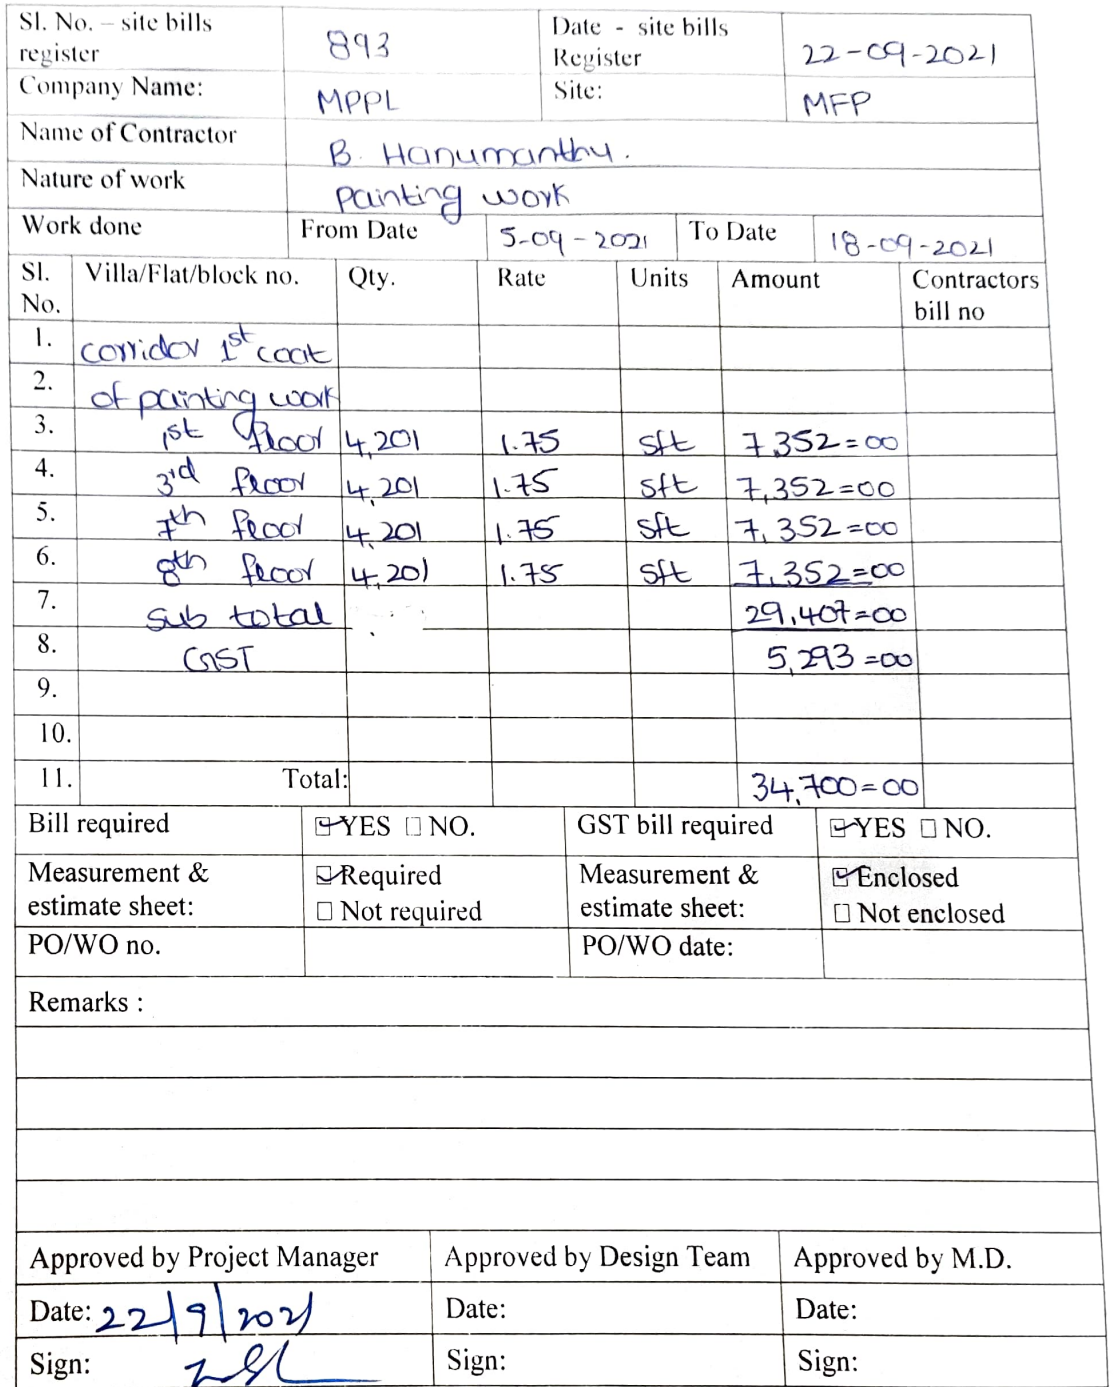 Sl. No. – site bills register 893 Date - site bills Register 22-09-2021
Company Name: MPPL Site: MFP
Name of Contractor B. Hanumanthu.
Nature of work Painting work
Work done From Date 5-09-2021 To Date 18-09-2021
Sl. No. Villa/Flat/block no. Qty. Rate Units Amount Contractors bill no
1. corridor 1st coat
2. of painting work
3. 1st floor 4,201 1.75 sft 7,352=00
4. 3rd floor 4,201 1.75 sft 7,352=00
5. 7th floor 4,201 1.75 sft 7,352=00
6. 8th floor 4,201 1.75 sft 7,352=00
7. Sub total 29,407=00
8. GST 5,293=00
9.
10.
11. Total: 34,700=00
Bill required ☑YES ☐NO. GST bill required ☑YES ☐NO.
Measurement & estimate sheet: ☑Required ☐ Not required Measurement & estimate sheet: ☑Enclosed ☐ Not enclosed
PO/WO no. PO/WO date:
Remarks :
Approved by Project Manager Approved by Design Team Approved by M.D.
Date: 22/9/2021 Date: Date:
Sign: Sign: Sign: